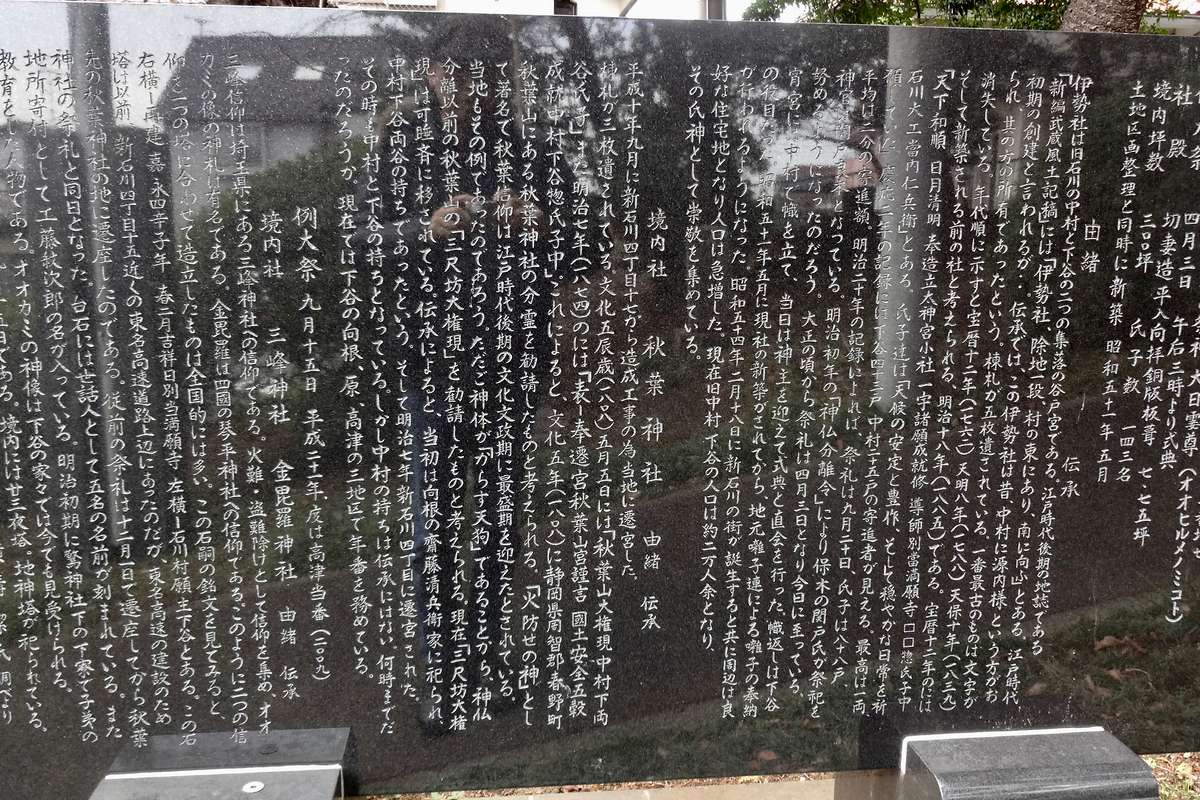 四月三日 午后三時より式典
切妻造平入向拝銅版板葺 七・七五坪
境内坪数 三〇坪 氏子数 一四三名
土地区画整理と同時に新築 昭和五十一年五月
由緒 伝承
「伊勢社は旧石川の中村と下谷の二つの集落の谷戸宮である。江戸時代後期の地誌である
「新編武蔵風土記稿」には「伊勢社、除地二段、村の東にあり、南に向ふ」とある。江戸時代
初期の創建と言われるが、伝承では、この伊勢社は昔、中村に源内様という方がお
られ 其の方の所有であったという。棟札が五枚遺されている。一番最古のものは文字が
消失している。年代順に示すと宝暦十二年(一七六二)天明八年(一七八八)天保十年(一八三九)
そして新築される前の社と考えられる、明治十八年(一八八五)である。宝暦十二年のには
「天下和順、日月清明、奉造立太神宮小社一宇諸願成就修、導師別当満願寺 □□惣氏子中
石川大工當内仁兵衛」とある。氏子達は「天候の安定と豊作、そして穏やかな日常を祈
願していた。慶応二年の記録には下谷四三戸、中村二五戸の寄進者が見える。最高は一両
平均は二分の寄進額。明治二十年の記録によれば、祭礼は九月二十日、氏子は六十八戸、
となっている。明治初年の「神仏分離令」により保木の関戸氏が祭祀を
努めるようになったのだろう。大正の頃から祭礼は四月三日となり今日に至っている。
宵宮には中村で幟を立て、当日は神主を迎えて式典と直会を行った。幟返しは下谷
の役目だった。昭和五十一年五月に現社の新築がされてから、地元囃子連による囃子の奉納
が行われるようになった。昭和五十四年二月十八日に新石川の街が誕生すると共に周辺は良
好な住宅地となり人口は急増した。現在旧中村下谷の人口は約二万人余となり、
その氏神として崇敬を集めている。
境内社 秋葉神社 由緒 伝承
平成十年九月に新石川四丁目十七から造成工事の為当地に遷宮した。
棟札が三枚遺されている。文化五辰歳(一八〇八)五月日には「秋葉山大権現中村下両
谷氏子」また明治七年(一八七四)のには「表ー奉遷宮秋葉山宮謹言 國土安全五穀
成就中村下谷惣氏子中」これによると、文化五年(一八〇八)に静岡県周智郡春野町
秋葉山にある秋葉神社の分霊を勧請したものと考えられる。「火防せの神」とし
て著名で秋葉信仰は江戸時代後期の文化文政期に最盛期を迎えたとされている。
当地もその例であったのであろう。ただご神体が「からす天狗」であることから、神仏
分離以前の秋葉山の「三尺坊大権現」を勧請したものと考えられる。現在「三尺坊大権
現」は可睡斉に移されている。伝承によると、当初は向根の齋藤清兵衛家に祀られ、
中村下谷両谷の持ちであったという。そして明治七年新石川四丁目に遷宮された。
その時も中村と下谷の持ちとなっている。しかし中村の持ちは伝承にはない、何時までだ
ったのだろうか。現在では下谷の向根、原、高津の三地区で年番を務めている。
例大祭 九月十五日 平成二十一年度は高津当番(二〇〇九)
境内社 三峰神社 金毘羅神社 由緒 伝承
三峰信仰は埼玉県にある三峰神社への信仰である。火難・盗難除けとして信仰を集め、オオ
カミの像の神札は有名である。金毘羅は四國の琴平神社への信仰であるこのように二つの信
仰を一つの塔に合わせて造立したものは全国的には多い。この石嗣の銘文を見てみると、
右横ー再建 嘉永四辛子年 春二月吉祥日別当満願寺 左横ー石川村願主下谷とある。この石
塔は以前、新石川四丁目十五近くの東名高速道路上辺にあったのだが、東名高速の建設のため
先の秋葉神社の地に遷座したのである。従前の祭礼は十二月一日で遷座してから秋葉
神社の祭礼と同日となった。台石には世話人として五名の名前が刻まれている。また
地所寄村として工藤紋次郎の名が入っている。明治初期に驚神社下の下家で子弟の
教育をした人物である。オオカミの神像は下谷の家々では今でも見受けられる。
境内には廿三夜塔・地神塔が祀られている。